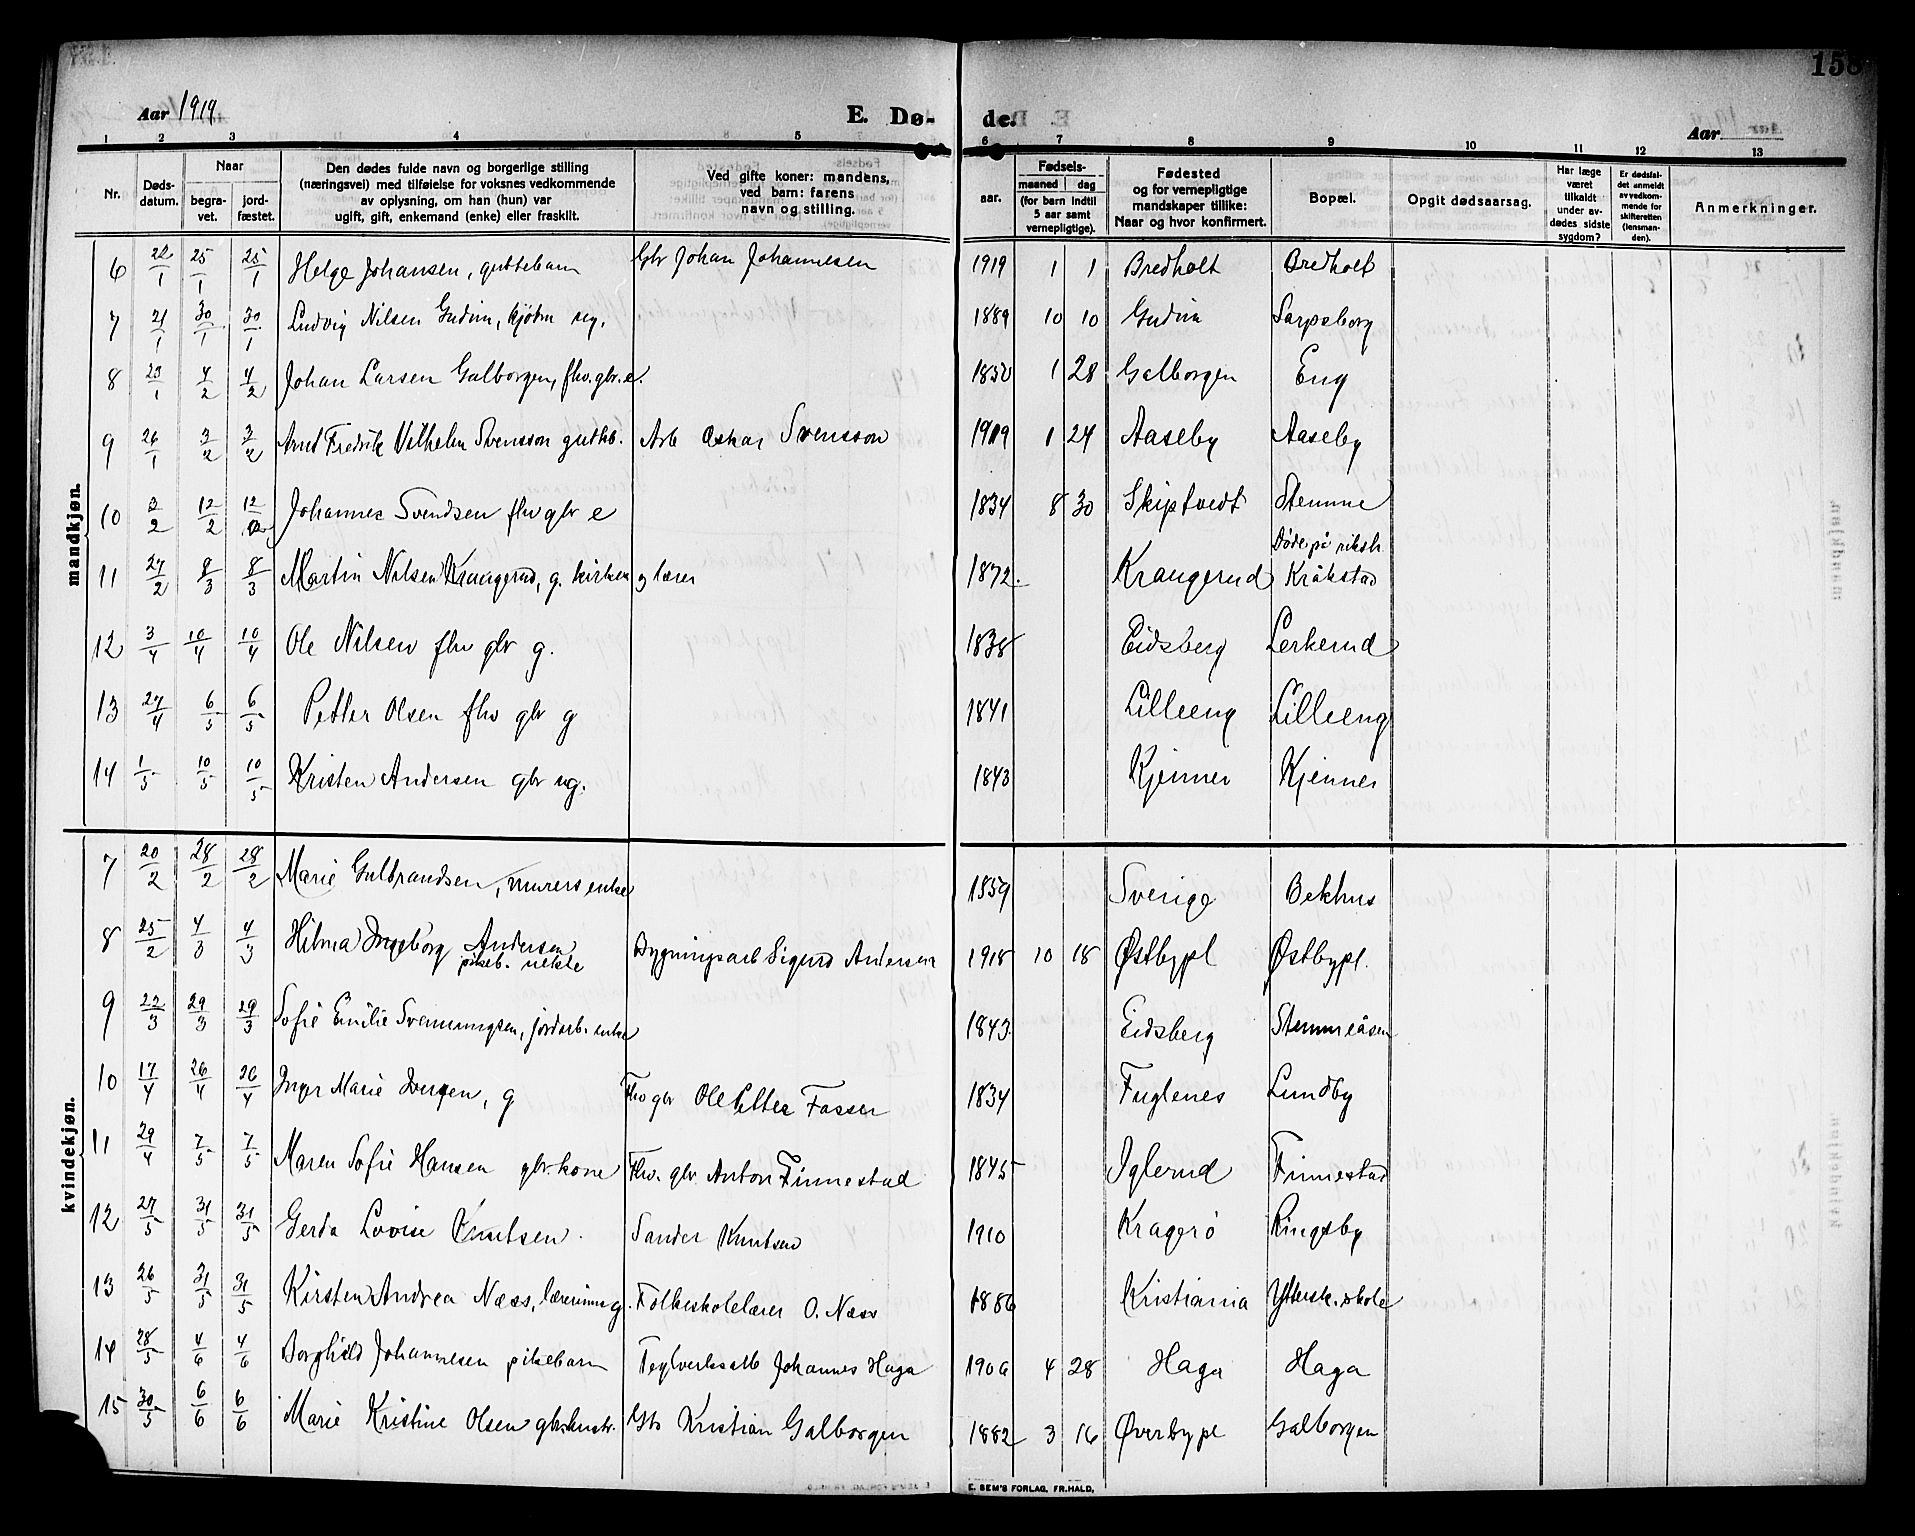 158
Aar 1919.
E. Dø- de.
Aar
1 2 3 4 5 6 7 8 9 10 11 12 13
Nr. Døds-datum. Naar begra-vet. jord-fæstet. Den dødes fulde navn og borgerlige stilling (næringsvei) med tilføielse for voksnes vedkommende av oplysning, om han (hun) var ugift, gift, enkemand (enke) eller fraskilt. Ved gifte koner: mandens, ved barn: farens navn og stilling. aar. Fødsels- maaned dag (for barn indtil 5 aar samt vernepligtige). Fødested og for vernepligtige mandskaper tillike: Naar og hvor konfirmert. Bopæl. Opgit dødsaarsag. Har læge været tilkaldt under av-dødes sidste sygdom? Er dødsfal-det anmeldt av vedkom-mende for skifteretten (lensman-den). Anmerkninger.
mandkjøn.
6 22/1 25/1 25/1 Helge Johansen, guttebarn Gbr Johan Johannesen 1919 1 1 Bredholt Bredholt
7 21/1 30/1 30/1 Ludvig Nilsen Gudim, kjøbm ug. 1889 10 10 Gudim Sarpsborg
8 23/1 4/2 4/2 Johan Larsen Galborgen, fhv. gbr. e. 1852 1 28 Galborgen Eng
9 26/1 3/2 3/2 Arnt Fredrik Vilhelm Svensson guttb. Arb Oskar Svensson 1919 1 24 Aaseby Aaseby
10 3/2 12/2 12/2 Johannes Svendsen fhv gbr e 1834 8 30 Skiptvedt Stemme
11 27/2 8/3 8/3 Martin Nilsen Krangerud, g. kirkesanger og lærer 1872. Krangerud Døde på riksh. Kråkstad
12 3/4 10/4 10/4 Ole Nilsen fhv gbr g. 1838 Eidsberg Lerkerud
13 27/4 6/5 6/5 Petter Olsen fhv gbr g 1841 Lilleeng Lilleeng
14 1/5 10/5 10/5 Kristen Andersen gbr ug. 1843 Kjennes Kjennes
kvindekjøn.
7 20/2 28/2 28/2 Marie Gulbrandsen, murers enke 1859 Sverige Bekhus
8 25/2 4/3 4/3 Hilma Ingeborg Andersen pikeb. uekte Bygningsarb Sigurd Andersen 1918 10 18 Østbypl Østbypl.
9 22/3 29/3 29/3 Sofie Emilie Svenningsen, jordarb. enke 1843 Eidsberg Stemmeåsen
10 17/4 26/4 26/4 Inger Marie, g Fhv gbr Ole Fosser 1834 Fuglenes Lundby
11 29/4 7/5 7/5 Maren Sofie Hansen gbr. kone Fhv. gbr Anton Finnestad 1845 Iglerud Finnestad
12 27/5 31/5 31/5 Gerda Lovise Knutsen. Sander Knutsen 1910 Kragerø Ringsby
13 26/5 31/5 31/5 Kirsten Andrea Næss, lærerinne g. Folkeskolelærer O. Næss 1886 Kristiania Yttersk. skole
14 28/5 4/6 4/6 Borghild Johannesen pikebarn Teglverksarb Johannes Haga 1906 4 28 Haga Haga
15 30/5 6/6 6/6 Marie Kristine Olsen gbr. hustr. Gbr Kristian Galborgen 1882 3 16 Øverbypl Galborgen
E. SEM'S FORLAG, FR.HALD.